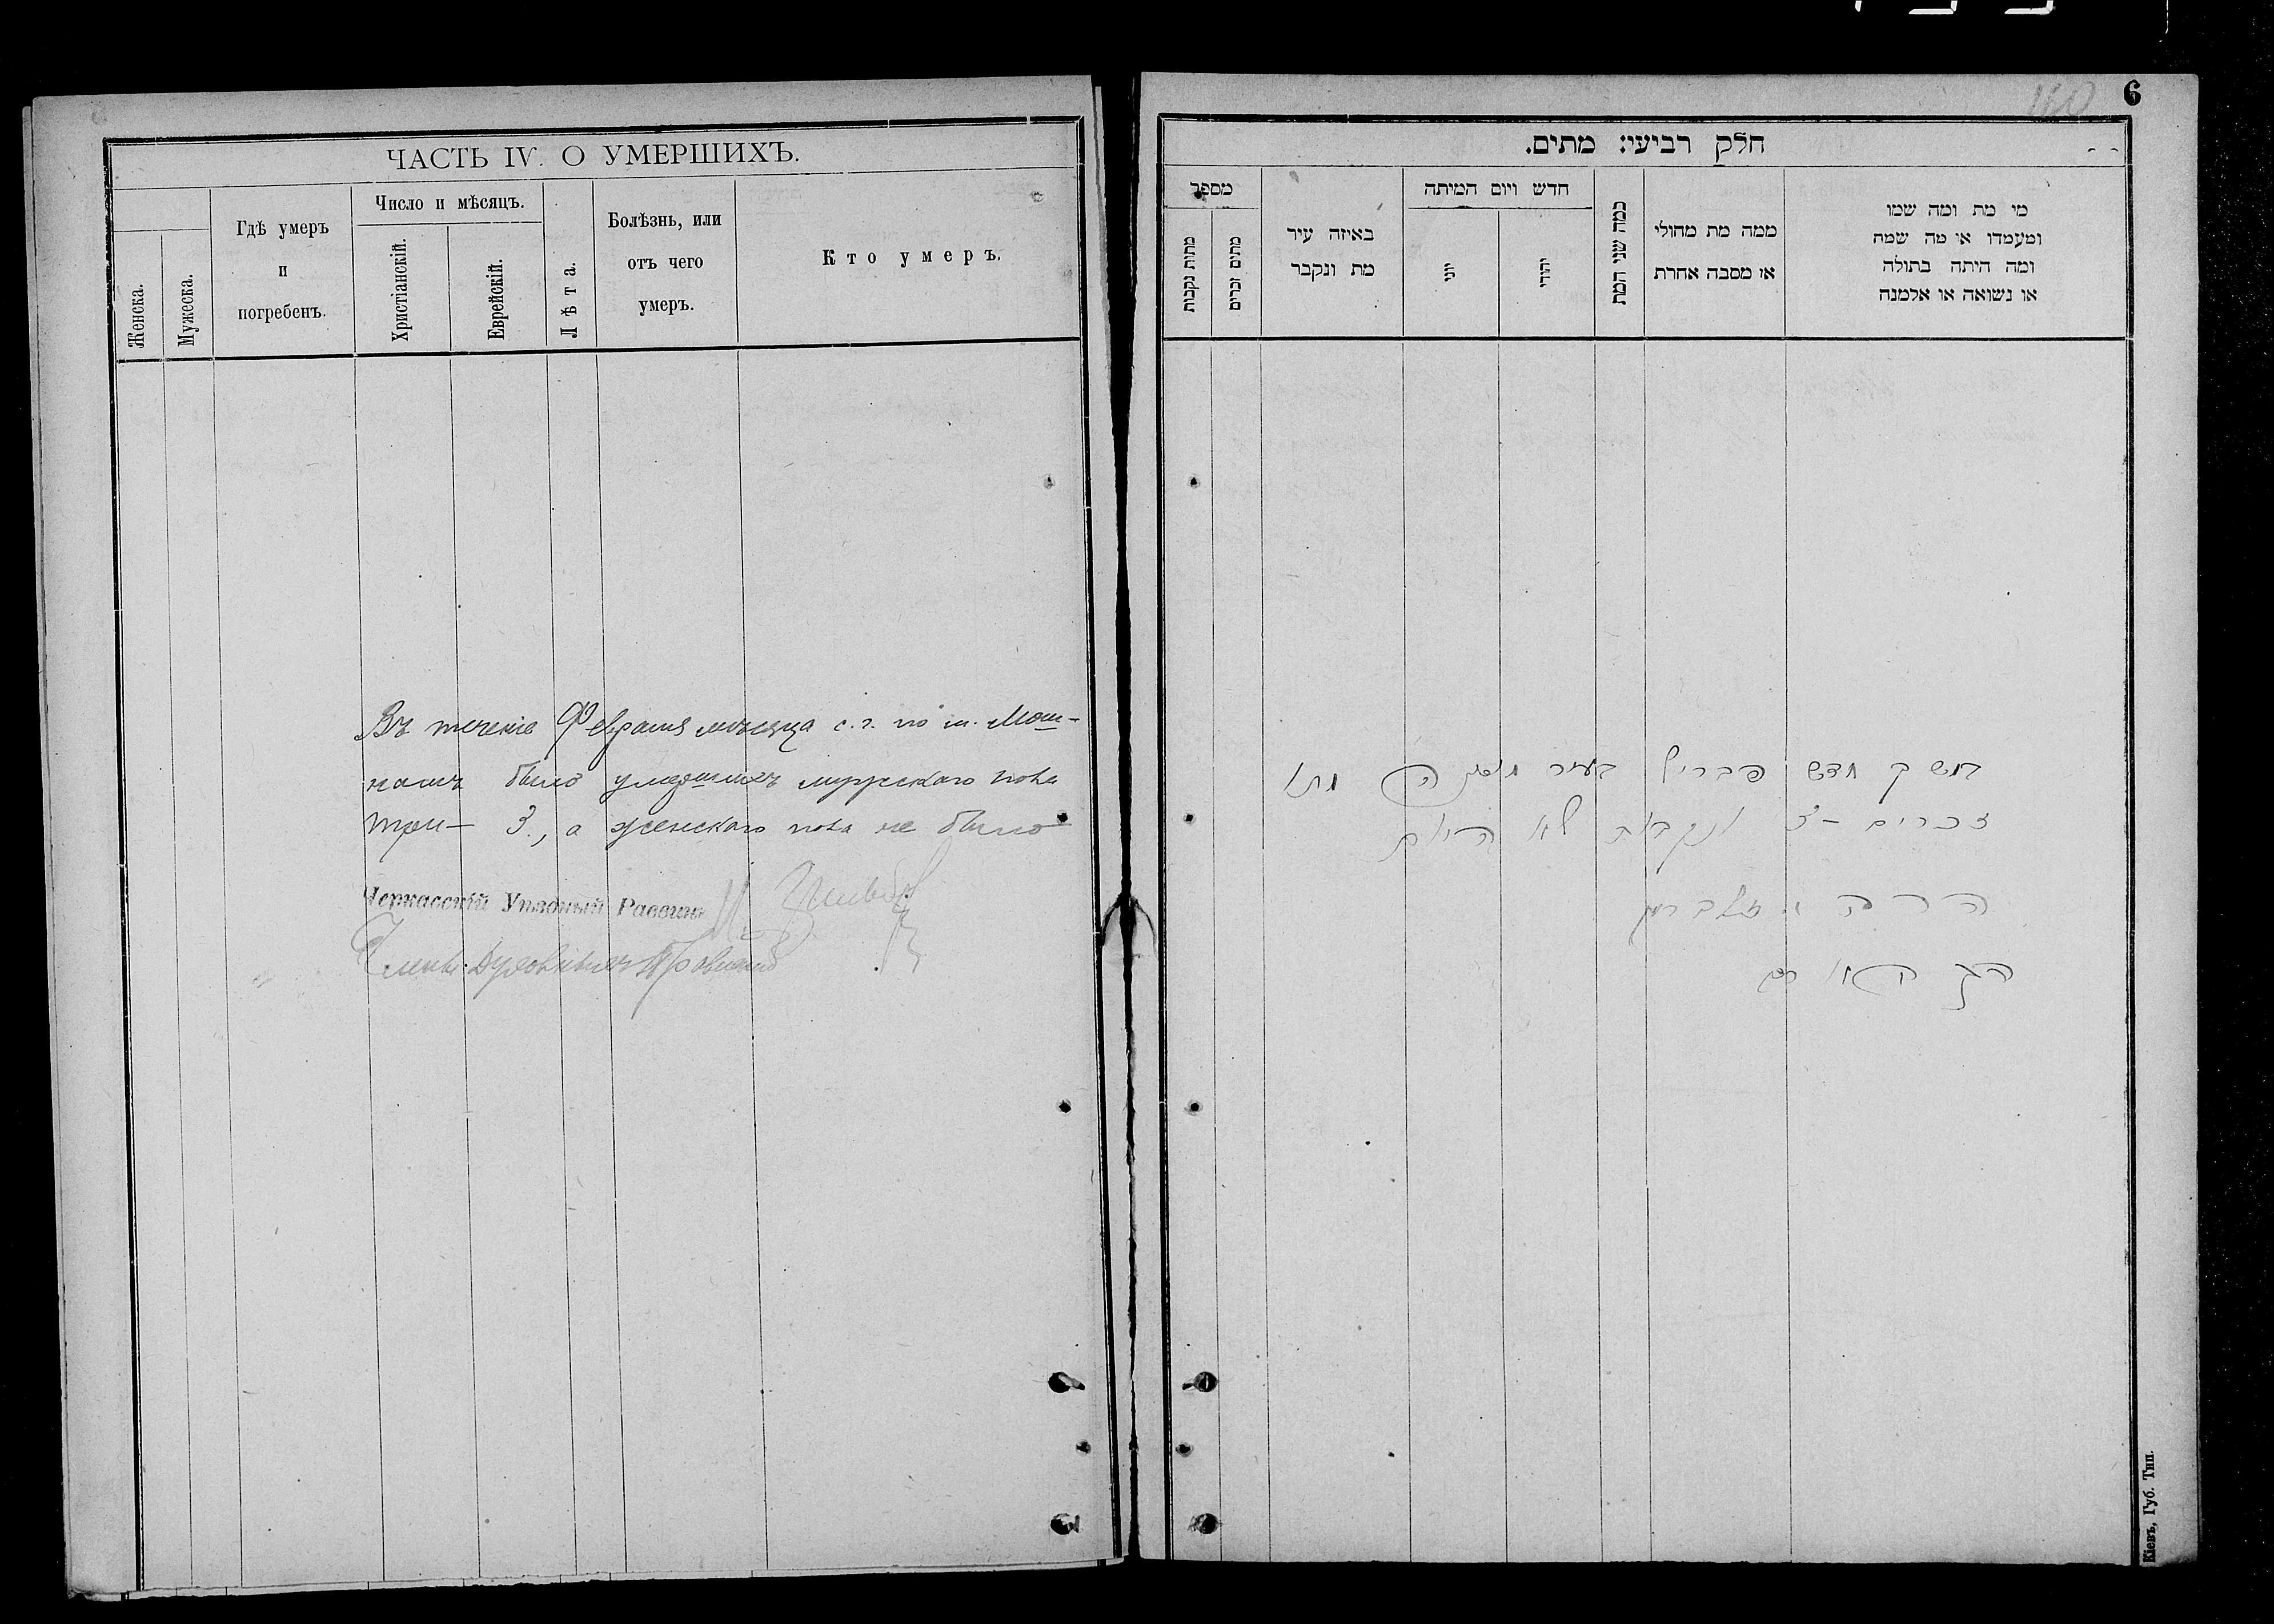 ЧАСТЬ IV. О УМЕРШИХЪ.
Женска.
Мужеска.
Гдѣ умеръ
и
погребенъ.
Число и мѣсяцъ.
Христіанскій.
Еврейскій.
Лѣта.
Болѣзнь, или
отъ чего
умеръ.
Кто умеръ.
Въ теченіе Февраля мѣсяца с. г. по м. Мош-
намъ было умершихъ мужскаго пола
три— 3., а женскаго пола не было
Черкасскій Уѣздный Раввинъ
Члены Духовныхъ Правленій
6
חלק רביעי: מתים.
מספר
מתות נקבות
מתים זכרים
באיזה עיר
מת ונקבר
חדש ויום המיתה
יוני
יהודי
כמה שני המת
ממה מת מחולי
או מסבה אחרת
מי מת ומה שמו
ומעמדו או מה שמה
ומה היתה בתולה
או נשואה או אלמנה
במשך חדש פבריל בעיר מתו
זכרים –3 ונקבות לא
הרב
Кіевъ, Губ. Тип.